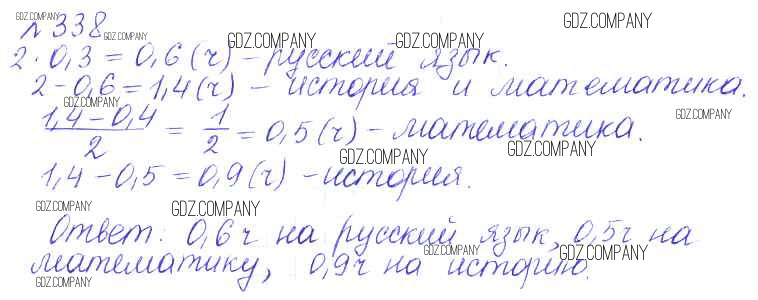 №338
2·0,3=0,6(ч)-русский язык.
2-0,6=1,4(ч) - история и математика.
(1,4-0,4)/2 = 1/2 = 0,5(ч)-математика.
1,4-0,5=0,9(ч)-история.
Ответ: 0,6ч на русский язык, 0,5ч на
математику, 0,9ч на историю.
GDZ.COMPANY
GDZ.COMPANY
GDZ.COMPANY
GDZ.COMPANY
GDZ.COMPANY
GDZ.COMPANY
GDZ.COMPANY
GDZ.COMPANY
GDZ.COMPANY
GDZ.COMPANY
GDZ.COMPANY
GDZ.COMPANY
GDZ.COMPANY
GDZ.COMPANY